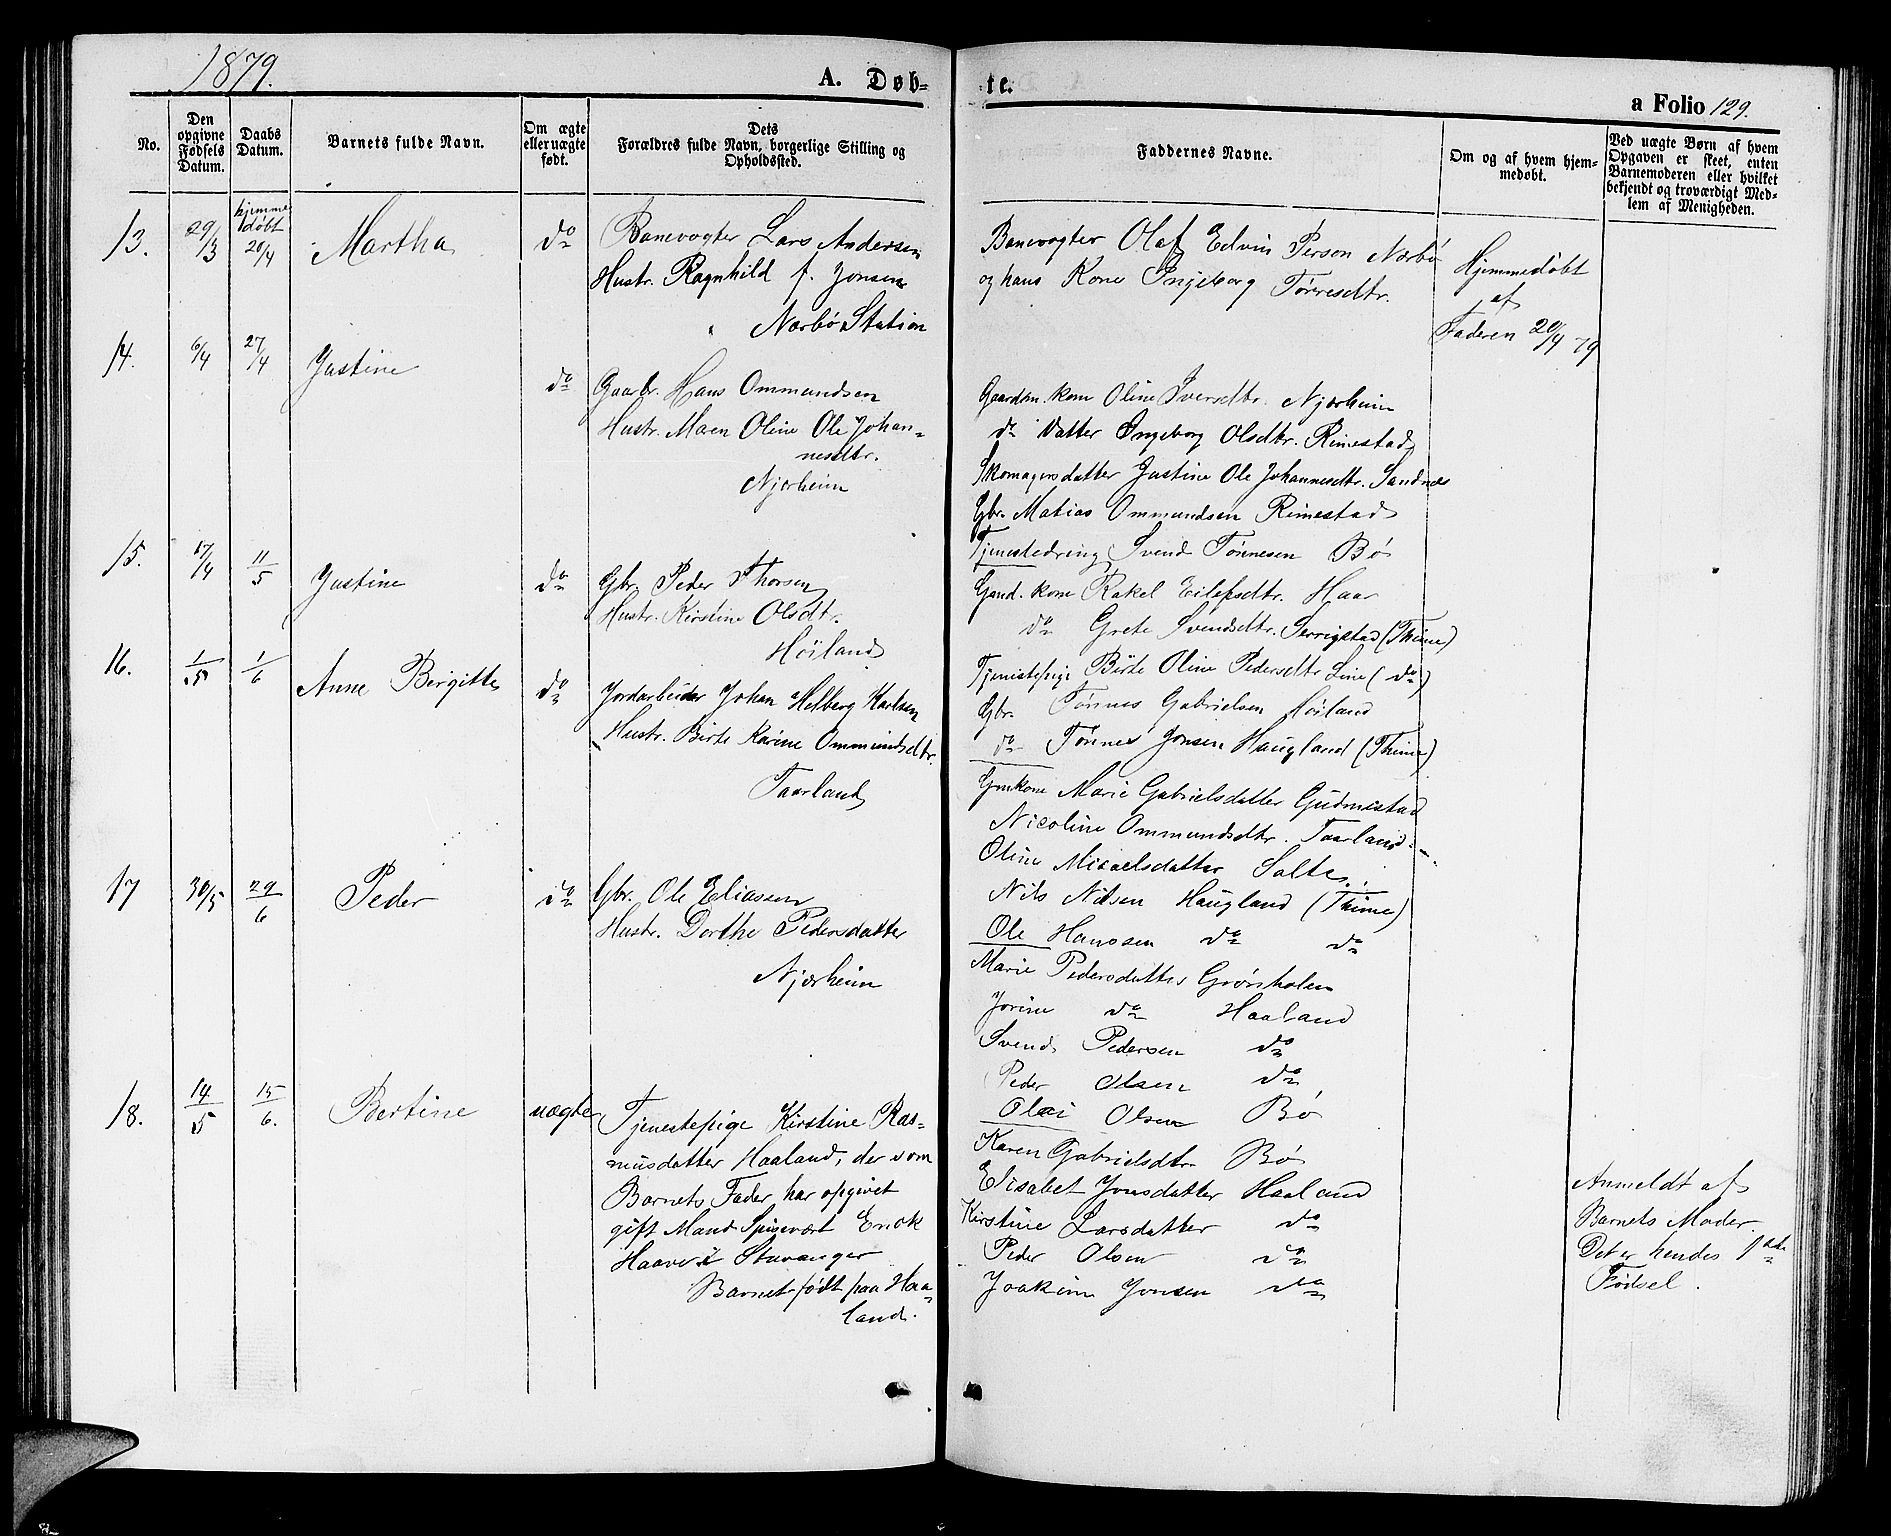 1879.
A. Døb-
te.
a Folio 129.
No.
Den opgivne Fødsels Datum.
Daabs Datum.
Barnets fulde Navn.
Om ægte eller uægte født.
Dets Forældres fulde Navn, borgerlige Stilling og Opholdssted.
Faddernes Navne.
Om og af hvem hjemmedøbt.
Ved uægte Børn af hvem Opgaven er skeet, enten Barnemoderen eller hvilket bekjendt og troværdigt Medlem af Menigheden.
13.
29/3
hjemmedøbt
20/4
Martha
do
Banevogter Lars Andersen
Hustr. Ragnhild f. Jonsen
Nærbø Station
Banevogter Olaf Edvin Person Nærbø
og hans Kone Ingeborg Tørresdtr.
Hjemmedøbt
af
Faderen 20/4 79
14.
6/4
27/4
Justine
do
Gaarbr. Hans Ommundsen
Hustr. Maen Oline Ole Johan-
nesdtr.
Njærheim
Gaardm. kone Oline Iversdtr. Njærheim
do Datter Ingeborg Olsdtr. Rimestad
Skomagersdatter Justine Ole Johannesdtr. Sandnes
Gbr. Matias Ommundsen Rimestad
Tjenestedreng Svend Tønnesen Bø
15.
17/4
11/5
Justine
do
Gbr. Peder Thorsen
Hustr. Kirstine Olsdtr.
Høiland
Gmd. kone Rakel Eilefsdtr. Haar
do Grete Svendsdtr. Serrigstad (Thime)
Tjenestepige Birte Oline Pedersdtr Line (do)
Gbr. Tønnes Gabrielsen Høiland
do Tønnes Jonsen Haugland (Thime)
16.
1/5
1/6
Anne Birgitte
do
Jordarbeider Johan Helberg Karlsen
Hustr. Birte Karine Ommundsdtr.
Taarland
Gmkone Marie Gabrielsdatter Gudmestad
Nicoline Ommundsdtr. Taarland
Oline Micaelsdatter Salte
Nils Nilsen Haugland (Thime)
Ole Hanssen do do
17
30/5
29/6
Peder
do
Gbr. Ole Eliassen
Hustr. Dorthe Pedersdatter
Njærheim
Marie Pedersdatter Grøsholen
Jorine do Haaland
Svend Pedersen do
Peder Olsen do
Olai Olsen Bø
18.
14/5
15/6.
Bertine
uægte
Tjenestepige Kirstine Ras-
musdatter Haaland, der som
Barnets Fader har opgivet
gift Mand Spisevært Enok
Haaver i Stavanger
Barnet født paa Haa-
land.
Karen Gabrielsdtr Bø
Elisabet Jonsdatter Haaland
Kirstine Larsdatter do
Peder Olsen do
Joakim Jonsen do
Anmeldt af
Barnets Moder.
Det er hendes 1ste
Fødsel.